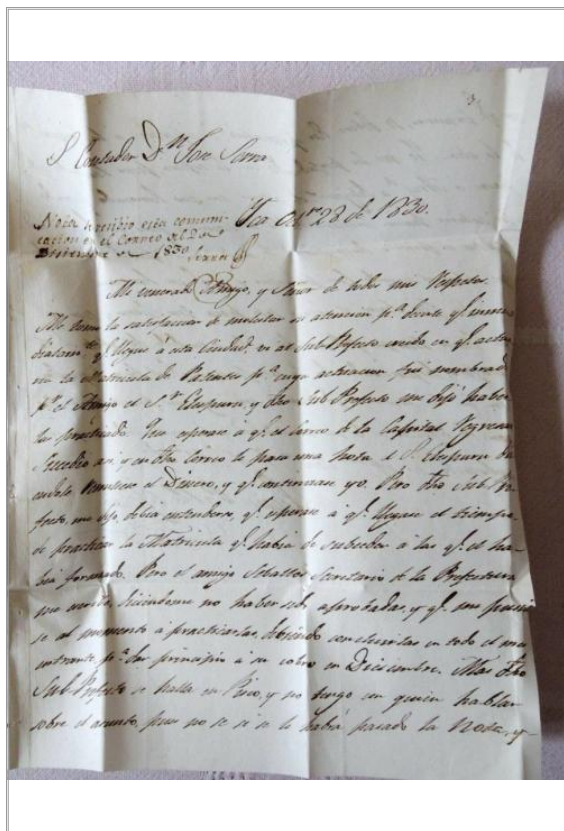 3
S. Contador Dn. José Serra
Yca Oct.re 28 de 1830.
Nota recibio esta comuni-
cacion en el Correo del 2 de
Diciembre de 1830 Serra
Mi venerado Amigo, y Señor de todos mis respetos.
Me tomo la satisfaccion de molestar su atencion p.a decirle q.e inme-
diatam.te q.e llegue á esta Ciudad, vi al Sub Prefecto
la Matricula de Patentes p.a cuya actuacion fui nombrado
p.r el Amigo el S.r Elespuru, y dho Sub Prefecto me dijo haber-
la practicado. Que esperase á q.e el Correo de la Capital regresase.
Sucedió asi, y en dho Correo le pasa una Nota el S. Elespuru
remitiese el Dinero, y q.e continuase yo. Pero dho Sub Pre-
fecto, me dijo, debia entenderse, q.e esperase á q.e llegase el tiempo
de practicar la Matricula q.e habia de suceder á las q.e el ha-
bia formado. Pero el amigo Ceballos Secretario de la Prefectura
me escribe, diciendome no haber sido aprobadas, y q.e me pusie-
se al momento á practicarlas, debiendo concluirlas en todo el mes
entrante, p.a dar principio á su cobro en Diciembre. Mas dho
Sub Prefecto se halla en Pisco, y no tengo con quien hablar
sobre el asunto, pues no se si se le habrá pasado la Nota, y